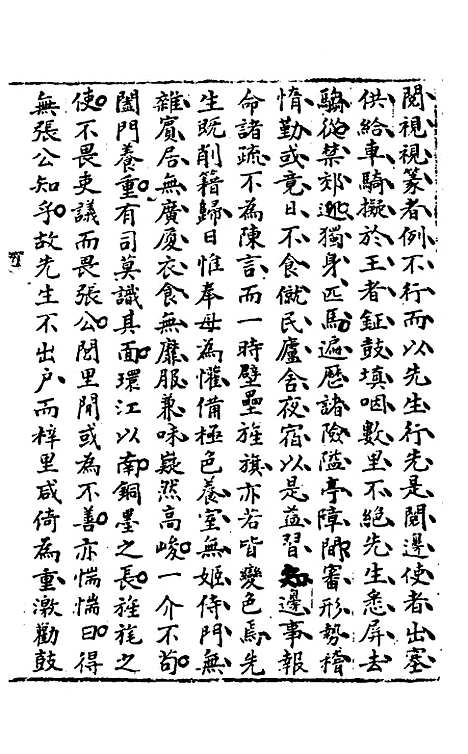 閱視視篆者例不行而以先生行先是閱邊使者出塞
供給車騎擬於王者鉦鼓填咽數里不絕先生悉屏去
騶從禁郊迯獨身匹馬遍歷諸險隘亭障間審形勢稽
惰勤或竟日不食僦民廬舍夜宿以是益習知邊事報
命諸疏不為陳言而一時壁壘旌旗亦若皆變色焉先
生既削籍歸日惟奉母為懽備極色養室無姬侍門無
雜賓居無廣廈衣食無靡服兼味嶷然高峻一介不苟
闔門養重有司莫識其面環江以南銅墨之長旌旄之
使不畏吏議而畏張公閭里間或為不善亦惴惴曰得
無張公知乎故先生不出戶而梓里咸倚為重激勸鼓